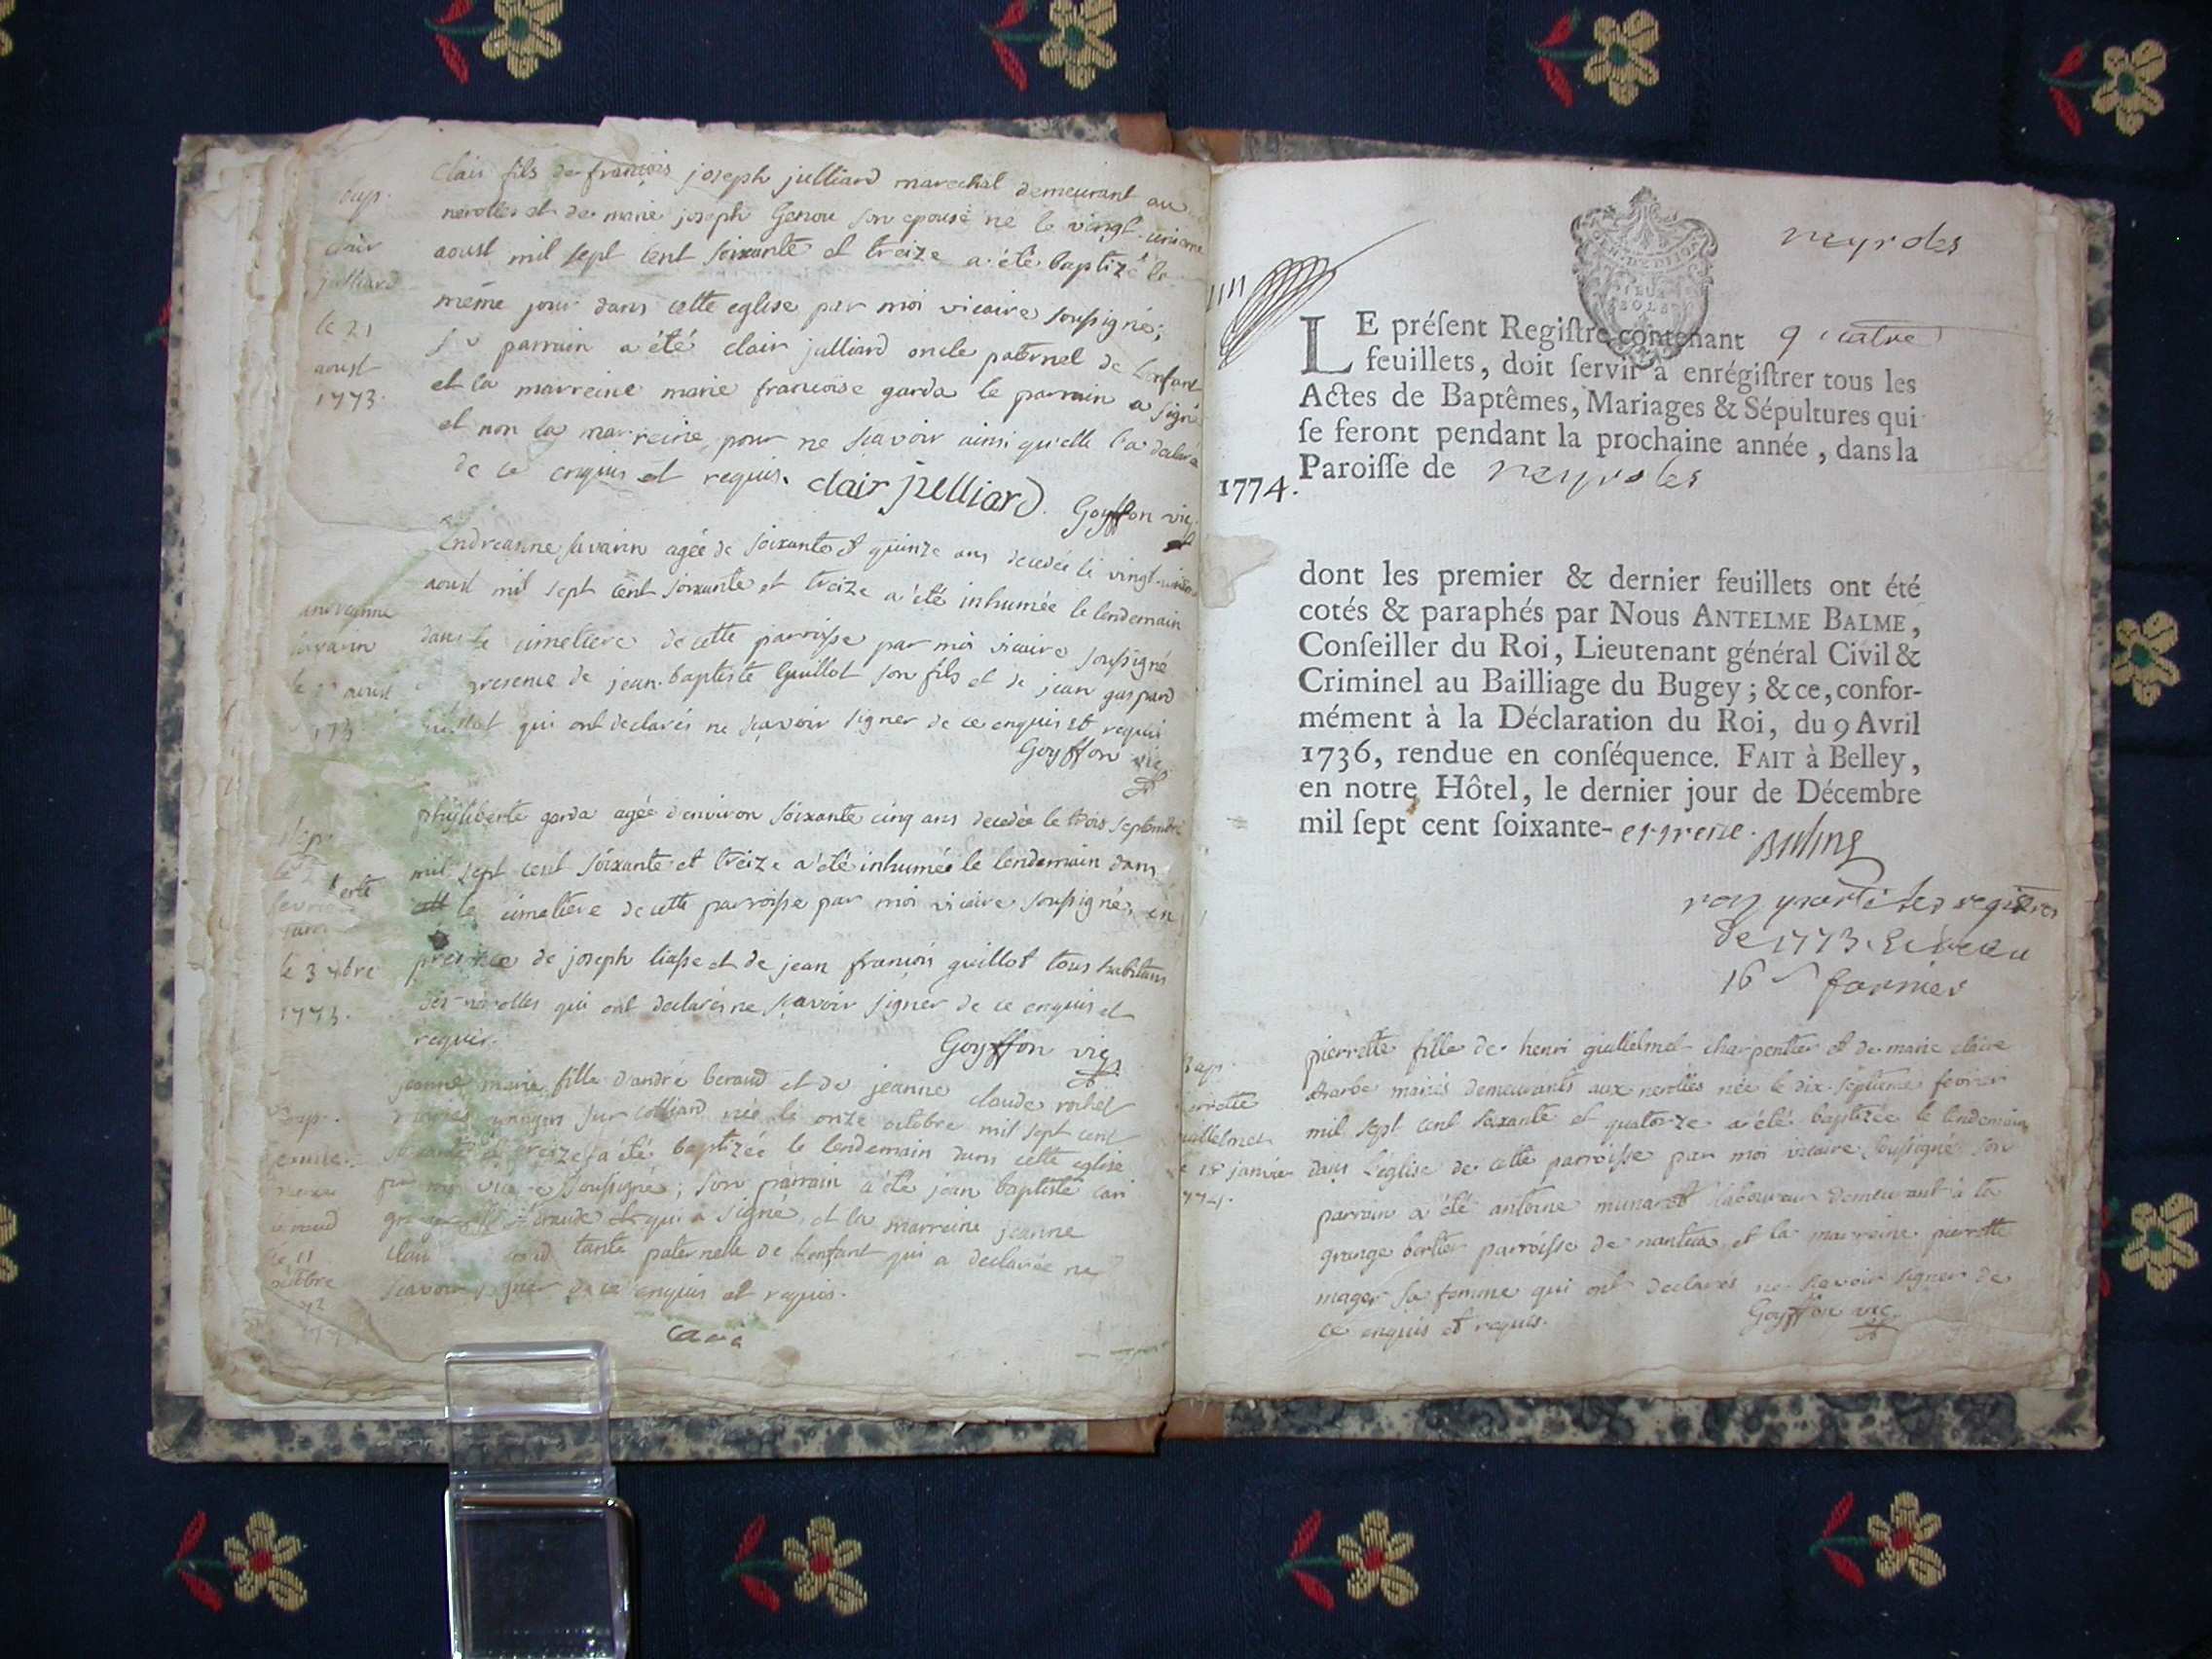 bap.
clair
julliard
le 21
aoust
1773.
Clair fils de françois joseph julliard marechal demeurant au
nerolles et de marie joseph Genou son epouse ne le vingt-unieme
aoust mil sept cent soixante et treize a été baptizé le
même jour dans cette eglise par moi vicaire soussigné;
parrain a été clair julliard oncle paternel de l'enfant
et la marreine marie françoise garda le parrain a signé
et non la marreine pour ne sçavoir ainsi qu'elle l'a declaré
de ce enquis et requis. clair julliard. Goyffon vic.
andreanne
savarin
aoust
Andreanne savarin agée de soixante et quinze ans decedée le vingt-
aoust mil sept cent soixante et treize a été inhumée le lendemain
dans le cimetiere de cette parroisse par moi vicaire soussigné
presence de jean-baptiste Guillot son fils et de jean gaspard
qui ont declarés ne sçavoir signer de ce enquis et requis
Goyffon vic.
le 3 7bre
1773.
phyliberte garda agée denviron soixante cinq ans decedée le trois septembre
mil sept cent soixante et treize a été inhumée le lendemain dans
le cimetiere de cette parroisse par moi vicaire soussigné, en
presence de joseph liasse et de jean françois guillot tous habitans
des nerolles qui ont declarés ne sçavoir signer de ce enquis et
requis.
Goyffon vic.
Bap.
jeanne
le 11
octobre
jeanne marie fille d'andré beraud et de jeanne claude rochet
sur colliard née le onze octobre mil sept cent
soixante et treize a été baptizée le lendemain dans cette eglise
par moi vicaire soussigné; son parrain a été jean baptiste
qui a signé, et la marreine jeanne
tante paternelle de l'enfant qui a declarée ne
sçavoir signer de ce enquis et requis.
neyroles
LE préſent Regiſtre contenant quatre
feuillets, doit ſervir à enrégiſtrer tous les
Actes de Baptêmes, Mariages & Sépultures qui
ſe feront pendant la prochaine année, dans la
Paroiſſe de neyroles
1774.
dont les premier & dernier feuillets ont été
cotés & paraphés par Nous ANTELME BALME,
Conſeiller du Roi, Lieutenant général Civil &
Criminel au Bailliage du Bugey; & ce, confor-
mément à la Déclaration du Roi, du 9 Avril
1736, rendue en conſéquence. FAIT à Belley,
en notre Hôtel, le dernier jour de Décembre
mil ſept cent ſoixante- et treize. Balme
registres
de 1773.
16
Bap.
pierrette
guillelmet
le 18 janvier
1774.
pierrette fille de henri guillelmet charpentier et de marie claire
barbe mariés demeurants aux nerolles née le dix-septieme fevrier
mil sept cent soixante et quatorze a été baptizée le lendemain
dans l'eglise de cette parroisse par moi vicaire soussigné son
parrain a été antoine munaret laboureur demeurant à la
grange bertier parroisse de nantua et la marreine pierrette
mager sa femme qui ont declarés ne sçavoir signer de
ce enquis et requis. Goyffon vic.